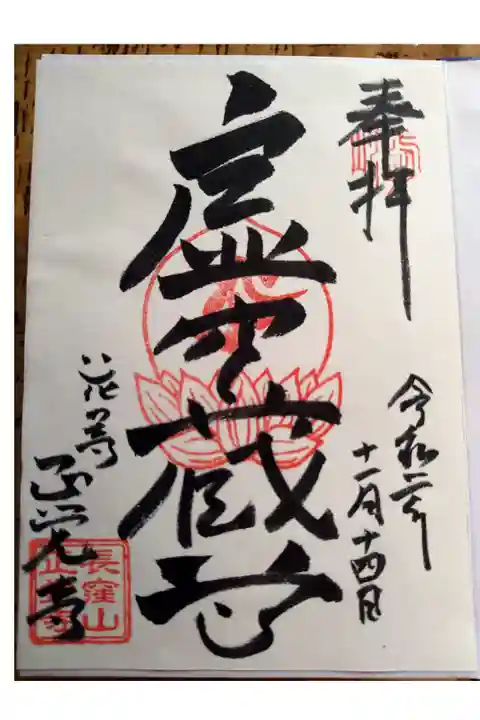 奉拝
令和二年
十一月十四日
虚空蔵尊
花の寺
正覚寺
長窪山
正覚寺